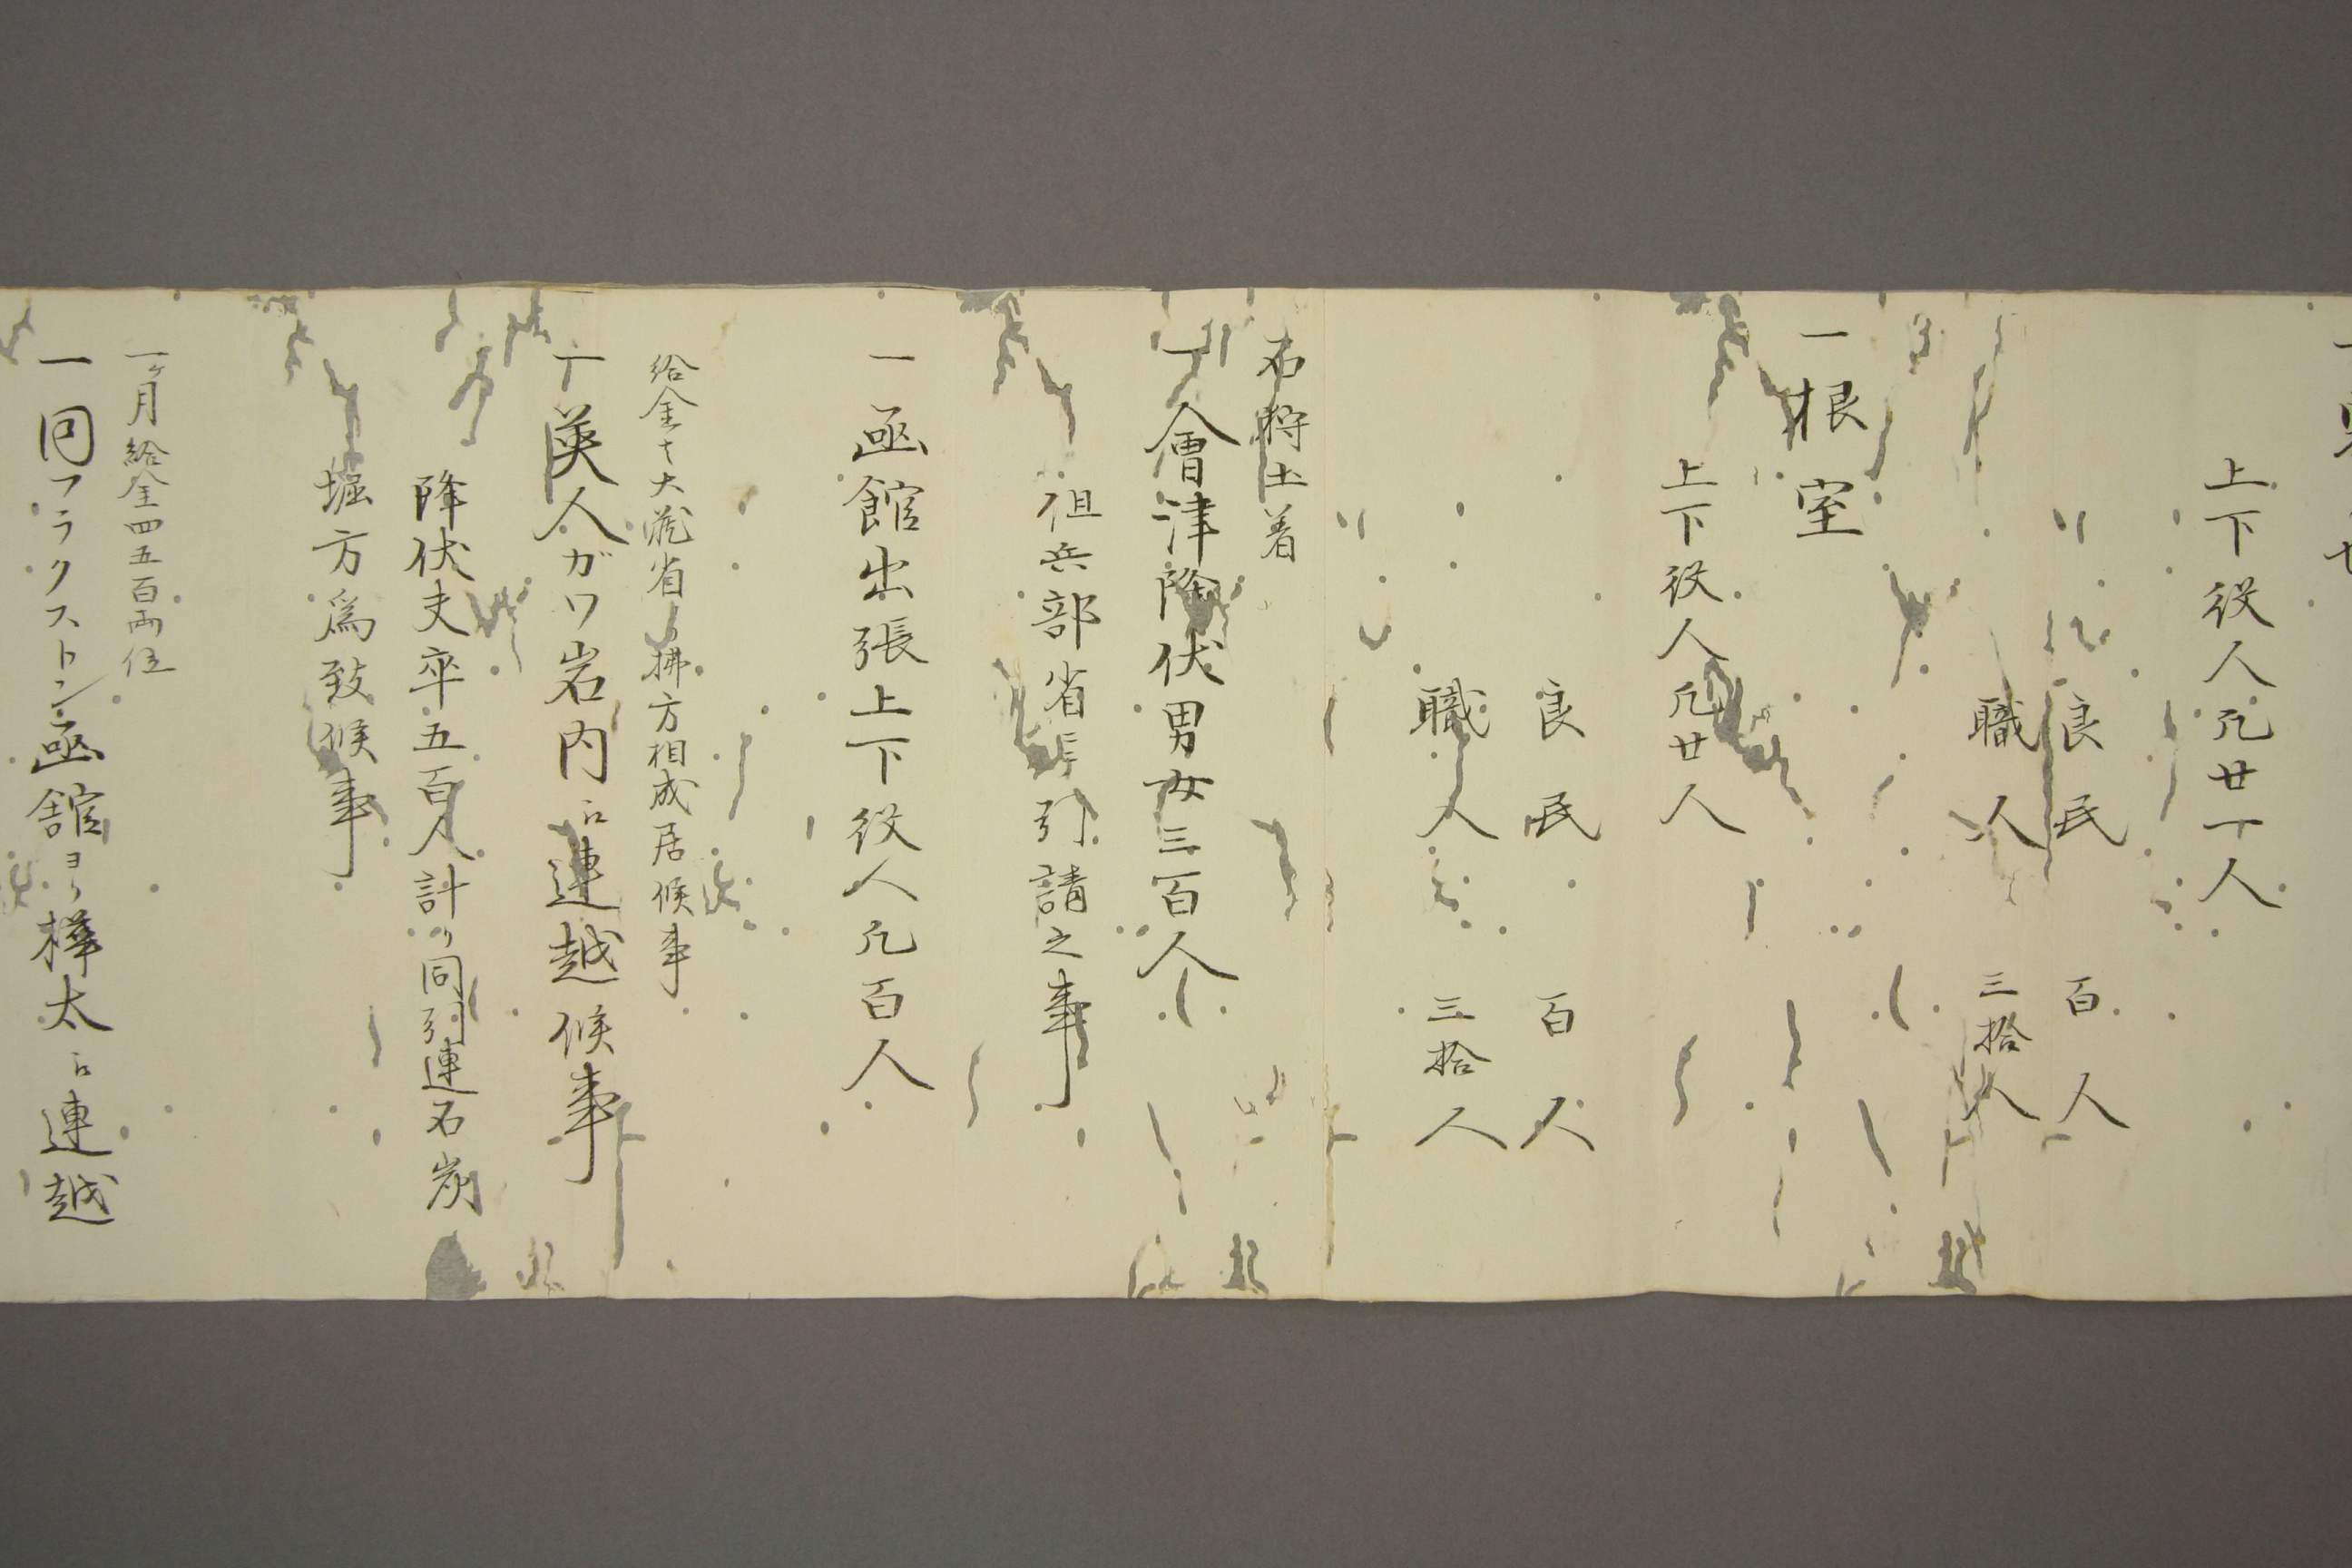 上下役人凡廿一人
良民 百人
職人 三拾人
一根室
上下役人凡廿人
良民 百人
職人 三拾人
石狩土着
一會津降伏男女三百人
但兵部省ニ而引請之事
一函館出張上下役人凡百人
給金ハ大蔵省ゟ拂方相成居候事
一英人ガワ岩内ヘ連越候事
降伏夫卒五百人計リ同引連石炭
堀方為致候事
一ヶ月給金四五百両位
一同フラクストン函館ヨリ樺太ヘ連越